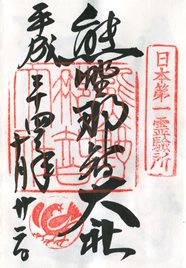 日本第一霊験所
熊野那智大社
平成二十四年
十月廿二日